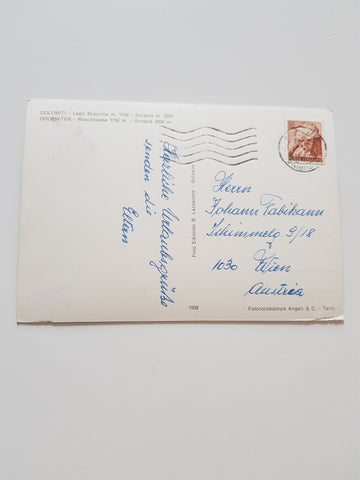 DOLOMITI - Lago Misurina m. 1756 - Sorapis m. 3205
DOLOMITEN - Misurinasee 1756 m. - Sorapis 3205 m.
Herzliche Urlaubsgrüße
senden die
Eltern
Foto Edizioni B. Lazzarotto - Bolzano
1008
Herrn
Johann Fabikann
Schimmelg 9/18
1030 Wien
Austria
Fotorotostampa Angeli & C. - Terni